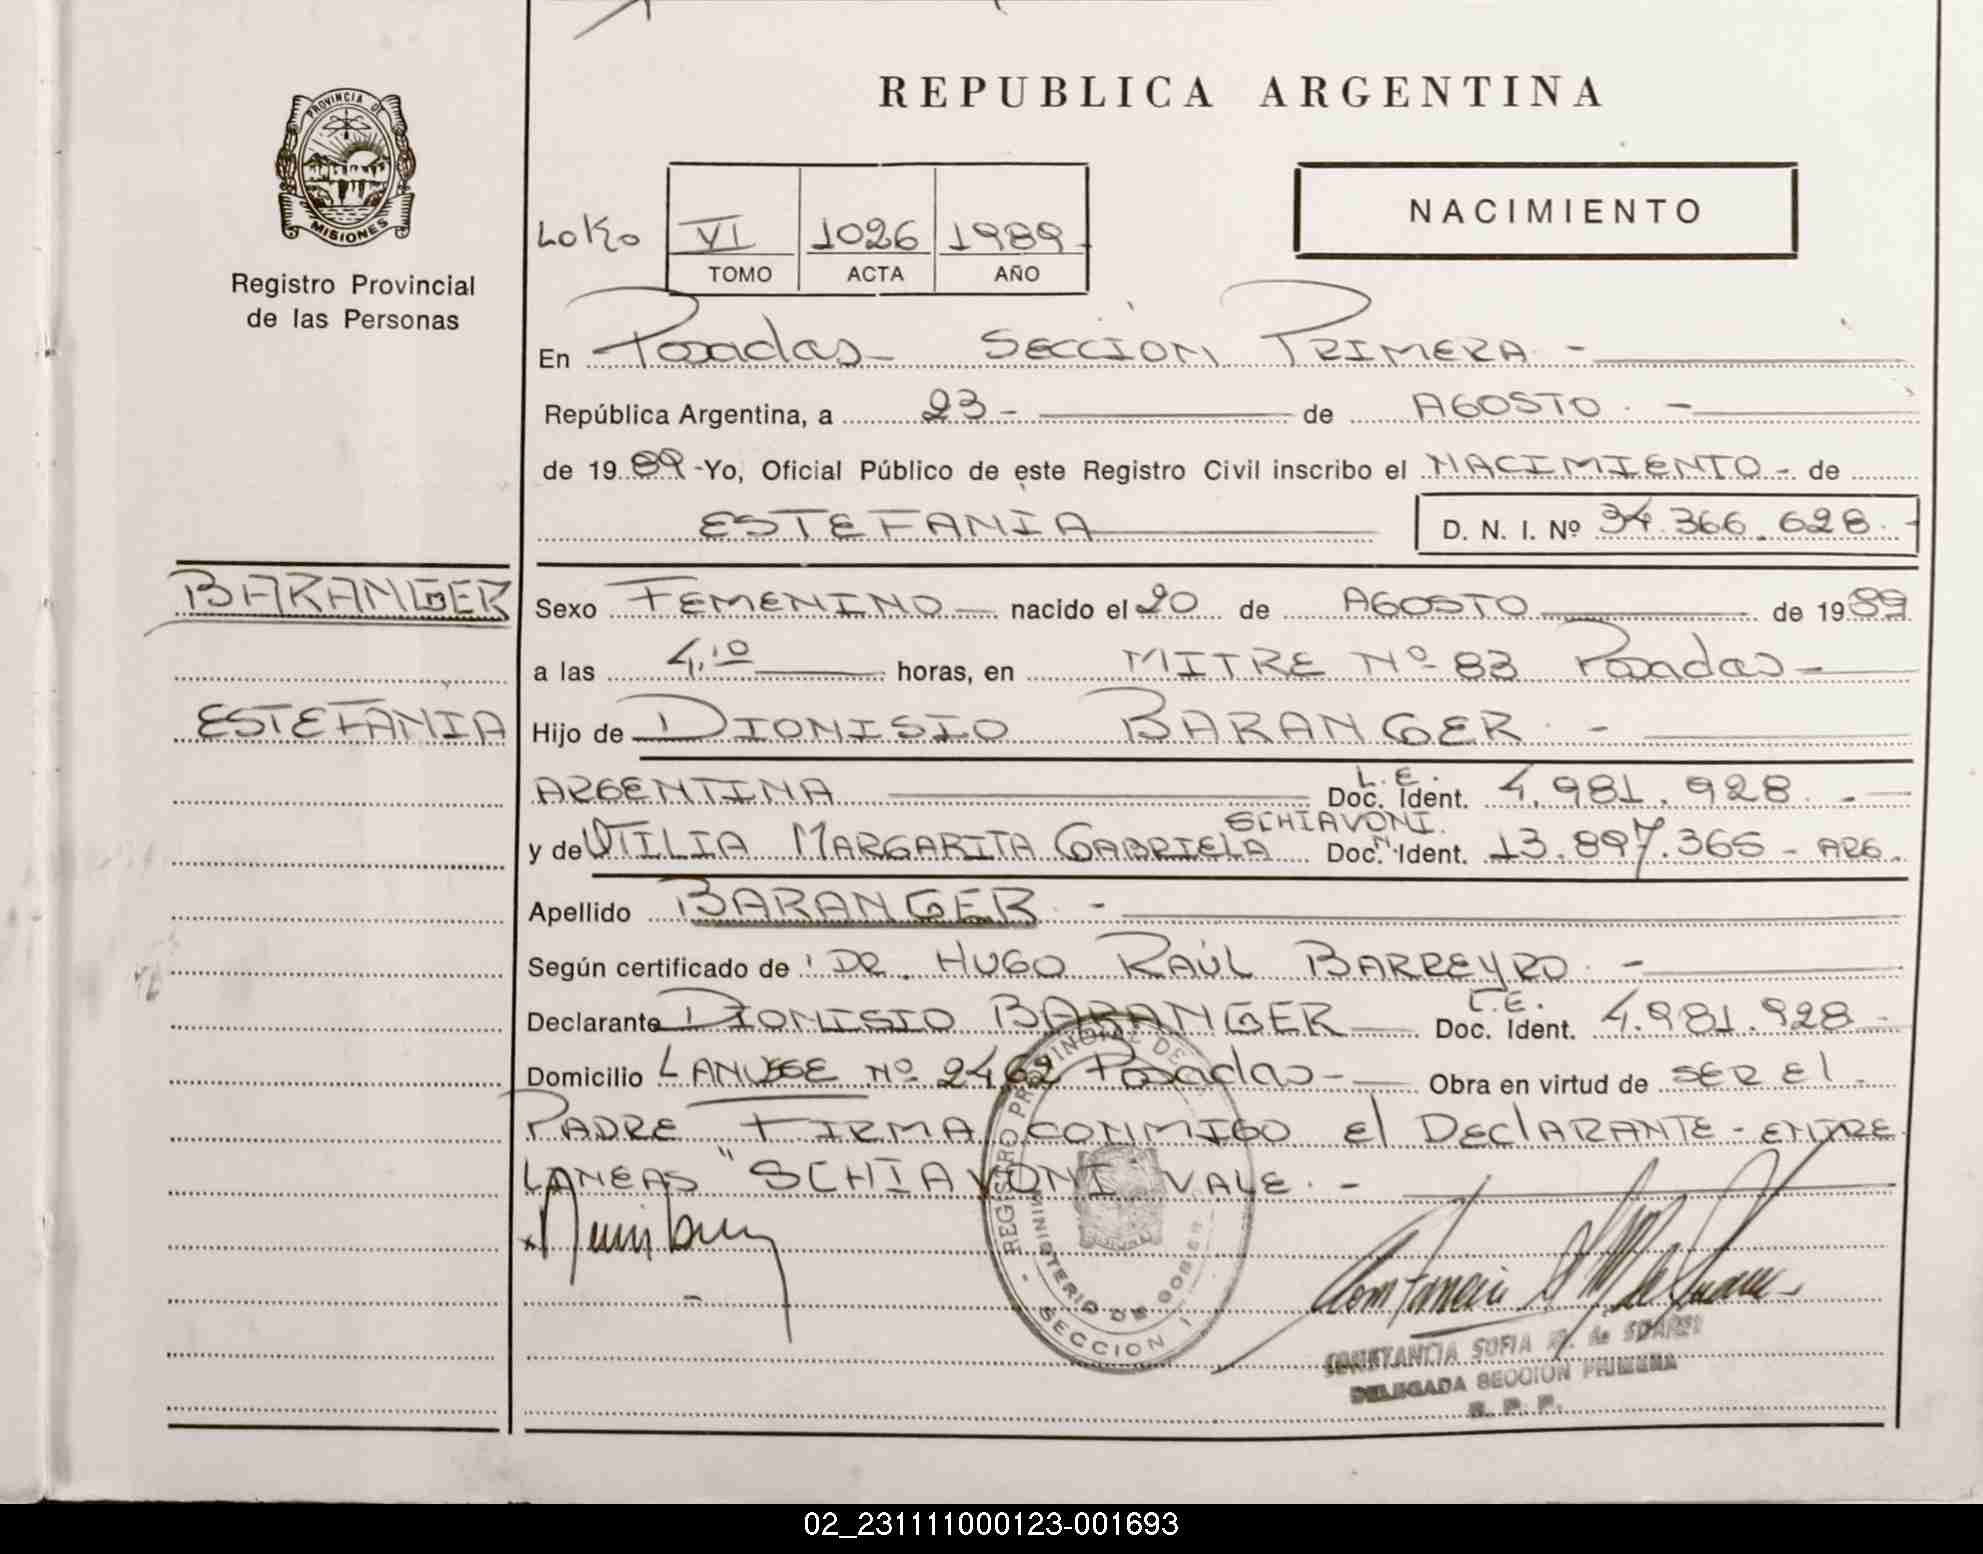 REPUBLICA ARGENTINA
PROVINCIA DE
MISIONES
Registro Provincial
de las Personas
VI 1026 1989
TOMO ACTA AÑO
NACIMIENTO
En Posadas SECCION PRIMERA. -
República Argentina, a 23 - de AGOSTO. -
de 19 89 - Yo, Oficial Público de este Registro Civil inscribo el NACIMIENTO - de
ESTEFANIA D. N. I. Nº 34.366.628. -
BARANGER
Sexo FEMENINO nacido el 20 de AGOSTO de 1989
a las 4,10 horas, en MITRE Nº 83 Posadas -
ESTEFANIA
Hijo de DIONISIO BARANGER. -
ARGENTINA L.E. Doc. Ident. 4.981.928. -
SCHIAVONI.
y de OTILIA MARGARITA GABRIELA Doc. Ident. 13.897.365 - ARG.
Apellido BARANGER. -
Según certificado de DR. HUGO RAÚL BARREYRO. -
Declarante DIONISIO BARANGER L.E. Doc. Ident. 4.981.928 -
Domicilio LANUSSE Nº 2462 Posadas - Obra en virtud de SER El
PADRE FIRMA CONMIGO El DEClARANTE - ENTRE
LINEAS "SCHIAVONI VALE. -
- REGISTRO PROVINCIAL DE
MINISTERIO DE GOBIER
SECCION 1
CONSTANCIA SOFIA M. de SUAREZ
DELEGADA SECCION PRIMERA
R. P. P.
02_231111000123-001693